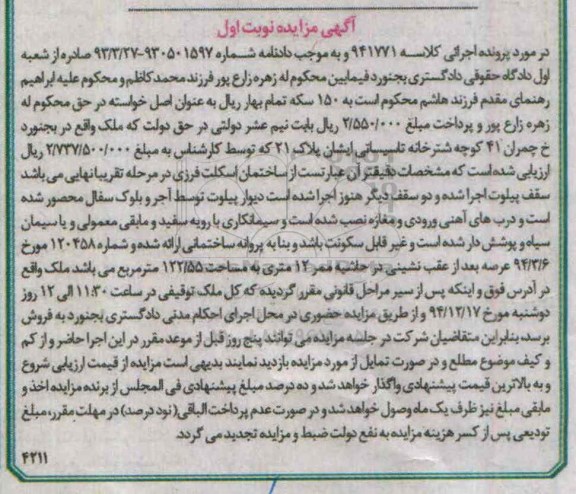 آگهی مزایده نوبت اول
در مورد پرونده اجرائی کلاسه ۹۴۱۷۷۱ و به موجب دادنامه شماره ۹۳۰۵۰۱۵۹۷-۹۳/۳/۲۷ صادره از شعبه
اول دادگاه حقوقی دادگستری بجنورد فیمابین محکوم له زهره زارع پور فرزند محمد کاظم و محکوم علیه ابراهیم
رهنمای مقدم فرزند هاشم محکوم است به ۱۵۰ سکه تمام بهار ریال به عنوان اصل خواسته در حق محکوم له
زهره زارع پور و پرداخت مبلغ ۲/۵۵۰/۰۰۰ ریال بابت نیم عشر دولتی در حق دولت که ملک واقع در بجنورد
خ چمران ۴۱ کوچه شترخانه تاسیساتی ایشان پلاک ۲۱ که توسط کارشناس به مبلغ ۲/۷۳۷/۵۰۰/۰۰۰ ریال
ارزیابی شده است که مشخصات دقیقتر آن عبارتست از ساختمان اسکلت فرزی در مرحله تقریبا نهایی می باشد
سقف پیلوت اجرا شده و دو سقف دیگر هنوز اجرا شده است دیوار پیلوت توسط آجر و بلوک سفال محصور شده
است و درب های آهنی ورودی و مغازه نصب شده است و سیمانکاری با رویه سفید و مابقی معمولی و یا سیمان
سیاه و پوشش دار شده است و غیر قابل سکونت باشد و بنا به پروانه ساختمانی ارائه شده و شماره ۱۲۰۴۵۸ مورخ
۹۴/۳/۶ عرصه بعد از عقب نشینی در حاشیه ممر ۱۲ متری به مساحت ۱۲۲/۵۵ مترمربع می باشد ملک واقع
در آدرس فوق و اینکه پس از سیر مراحل قانونی مقرر گردیده که کل ملک توقیفی در ساعت ۱۱:۳۰ الی ۱۲ روز
دوشنبه مورخ ۹۴/۱۲/۱۷ و از طریق مزایده حضوری در محل اجرای احکام مدنی دادگستری بجنورد به فروش
برسد، بنابراین متقاضیان شرکت در جلسه مزایده می توانند پنج روز قبل از موعد مقرر در این اجرا حاضر و از کم
و کیف موضوع مطلع و در صورت تمایل از مورد مزایده بازدید نمایند بدیهی است مزایده از قیمت ارزیابی شروع
و به بالاترین قیمت پیشنهادی واگذار خواهد شد و ده درصد مبلغ پیشنهادی فی المجلس از برنده مزایده اخذ و
مابقی مبلغ نیز ظرف یک ماه وصول خواهد شد و در صورت عدم پرداخت الباقی (نود درصد) در مهلت مقرر، مبلغ
تودیعی پس از کسر هزینه مزایده به نفع دولت ضبط و مزایده تجدید می گردد.
۴۲۱۱